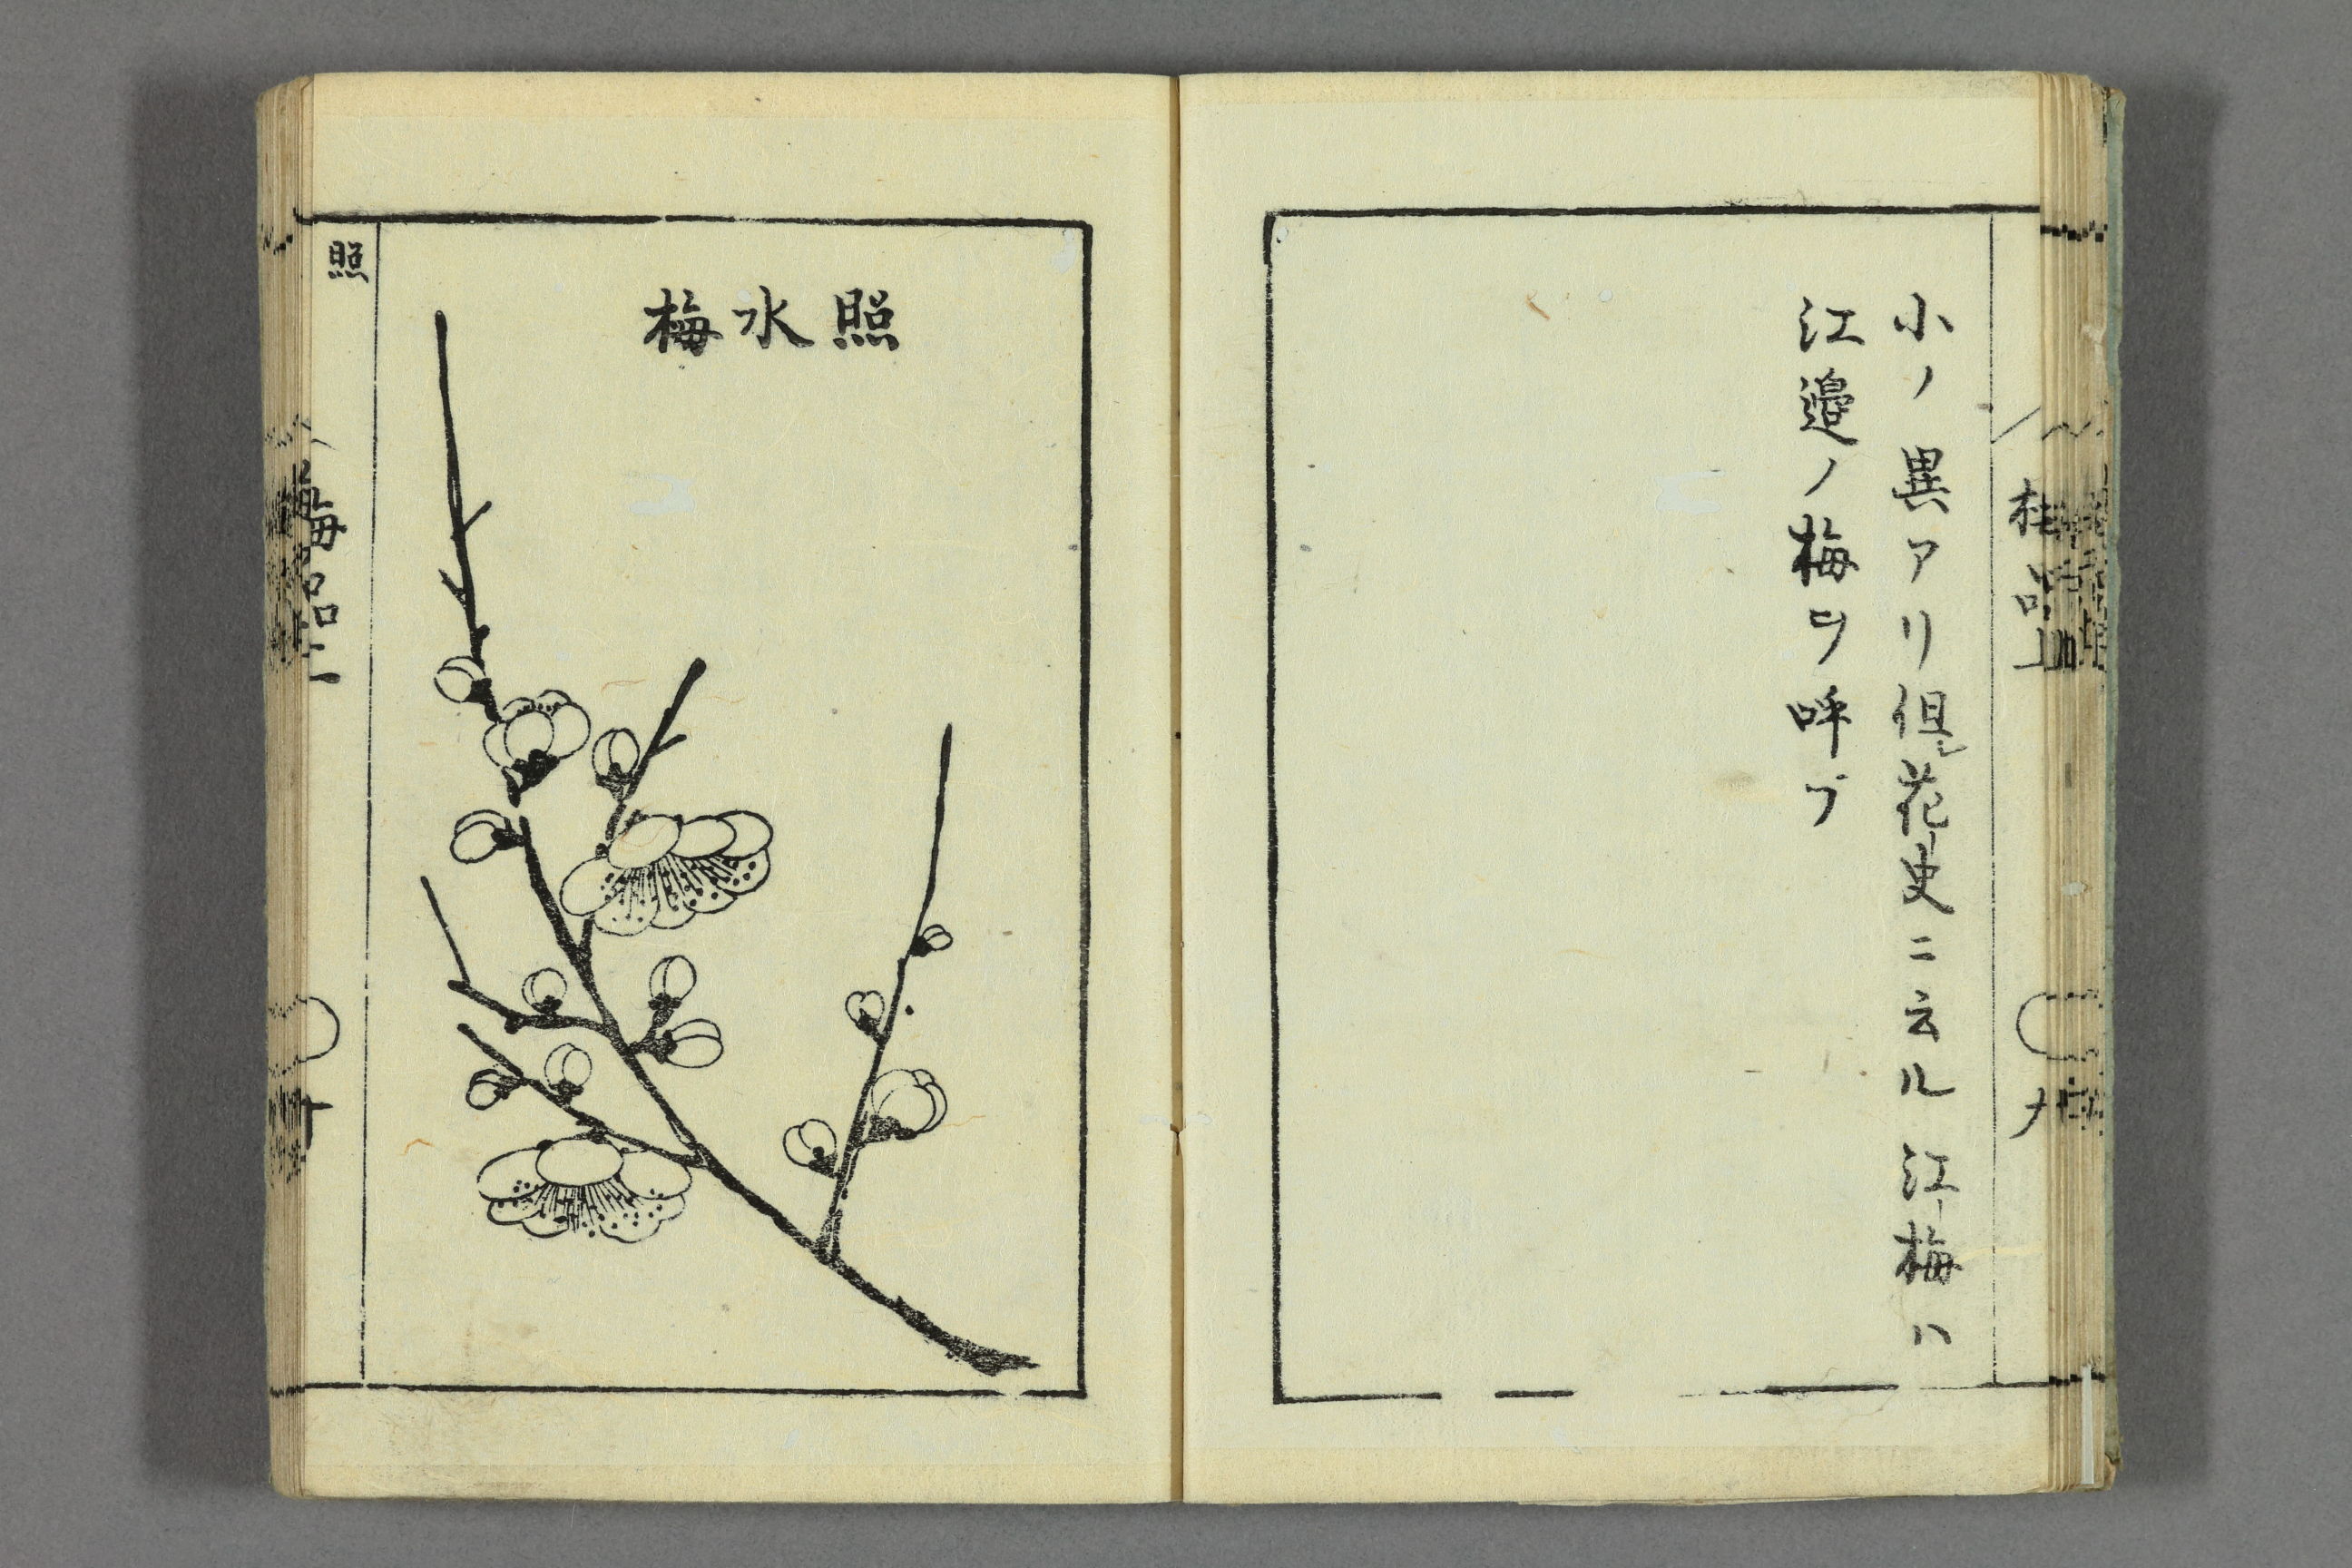 小ノ異アリ但シ花史ニ云ル江梅ハ
江邉ノ梅ヲ呼ブ
照水梅
照
梅品上